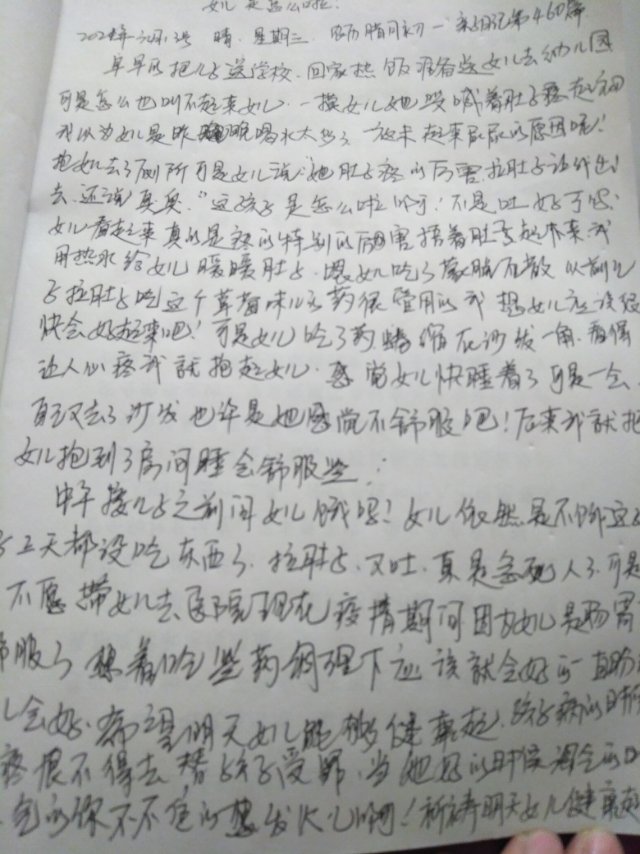 女儿是怎么啦!
2021年 月13号 晴 星期三 农历腊月初一 亲子日记第460篇
早早的把儿子送学校,回家热饭准备送女儿去幼儿园
可是怎么也叫不起来女儿,一摸女儿她哭喊着肚子疼起初
我以为女儿是昨晚喝水太多了一夜未起来尿尿的原因呢!
抱女儿去了厕所可是女儿说:"她肚子疼的厉害拉肚子
去,还说真臭."这孩子是怎么啦 不是吐
女儿看起来真的是疼的特别的厉害捂着肚子起不来我
用热水给女儿暖暖肚子,喂女儿吃了蒙脱石散 以前儿
子拉肚子吃这个草莓味儿的药很管用的我想女儿应该很
快会好起来吧!可是女儿吃了药蜷缩在沙发一角,看得
让人心疼我就抱起女儿,感觉女儿快睡着了可是一会
自己又去了沙发也许是她感觉不舒服吧!后来我就把
女儿抱到了房间睡会舒服些.
中午接儿子之前问女儿饿吗?女儿依然是不
子三天都没吃东西了,拉肚子,又吐,真是急死人了,可是
不愿带女儿去医院现在疫情期间因为女儿是肠胃
舒服了 想着吃些药调理下应该就会好的一直盼
儿会好,希望明天女儿能够健康起,孩子病的时
疼恨不得去替孩子受罪,当她好的时候
包的你不不住的想发火儿啊!祈祷明天女儿健康起